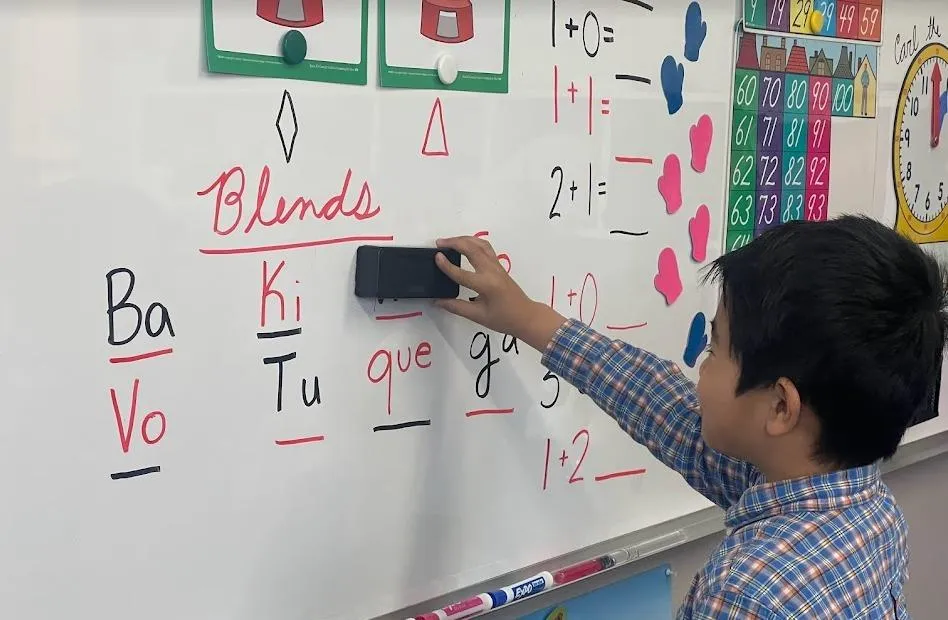 Blends
Ba Ki
Vo Tu que ga
1+0=
1+1=
2+1=
1+0
1+2
9 19 29 39 49 59
60 70 80 90 100
61 71 81 91
62 72 82 92
63 73 83 93
Carl the
11
10
9
8
7 6 5
EXPO